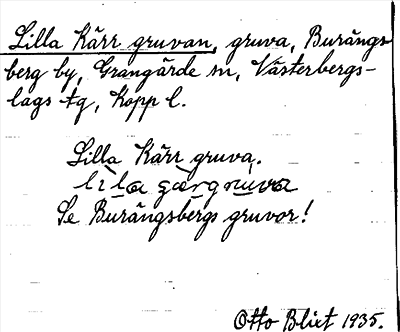 Lilla Kärr gruvan, gruva, Burängs-
berg by, Grangärde sn, Västerbergs-
lags tg, Kopp l.
Lilla Kärr gruva.
Se Burängsbergs gruvor!
Otto Blixt 1935.